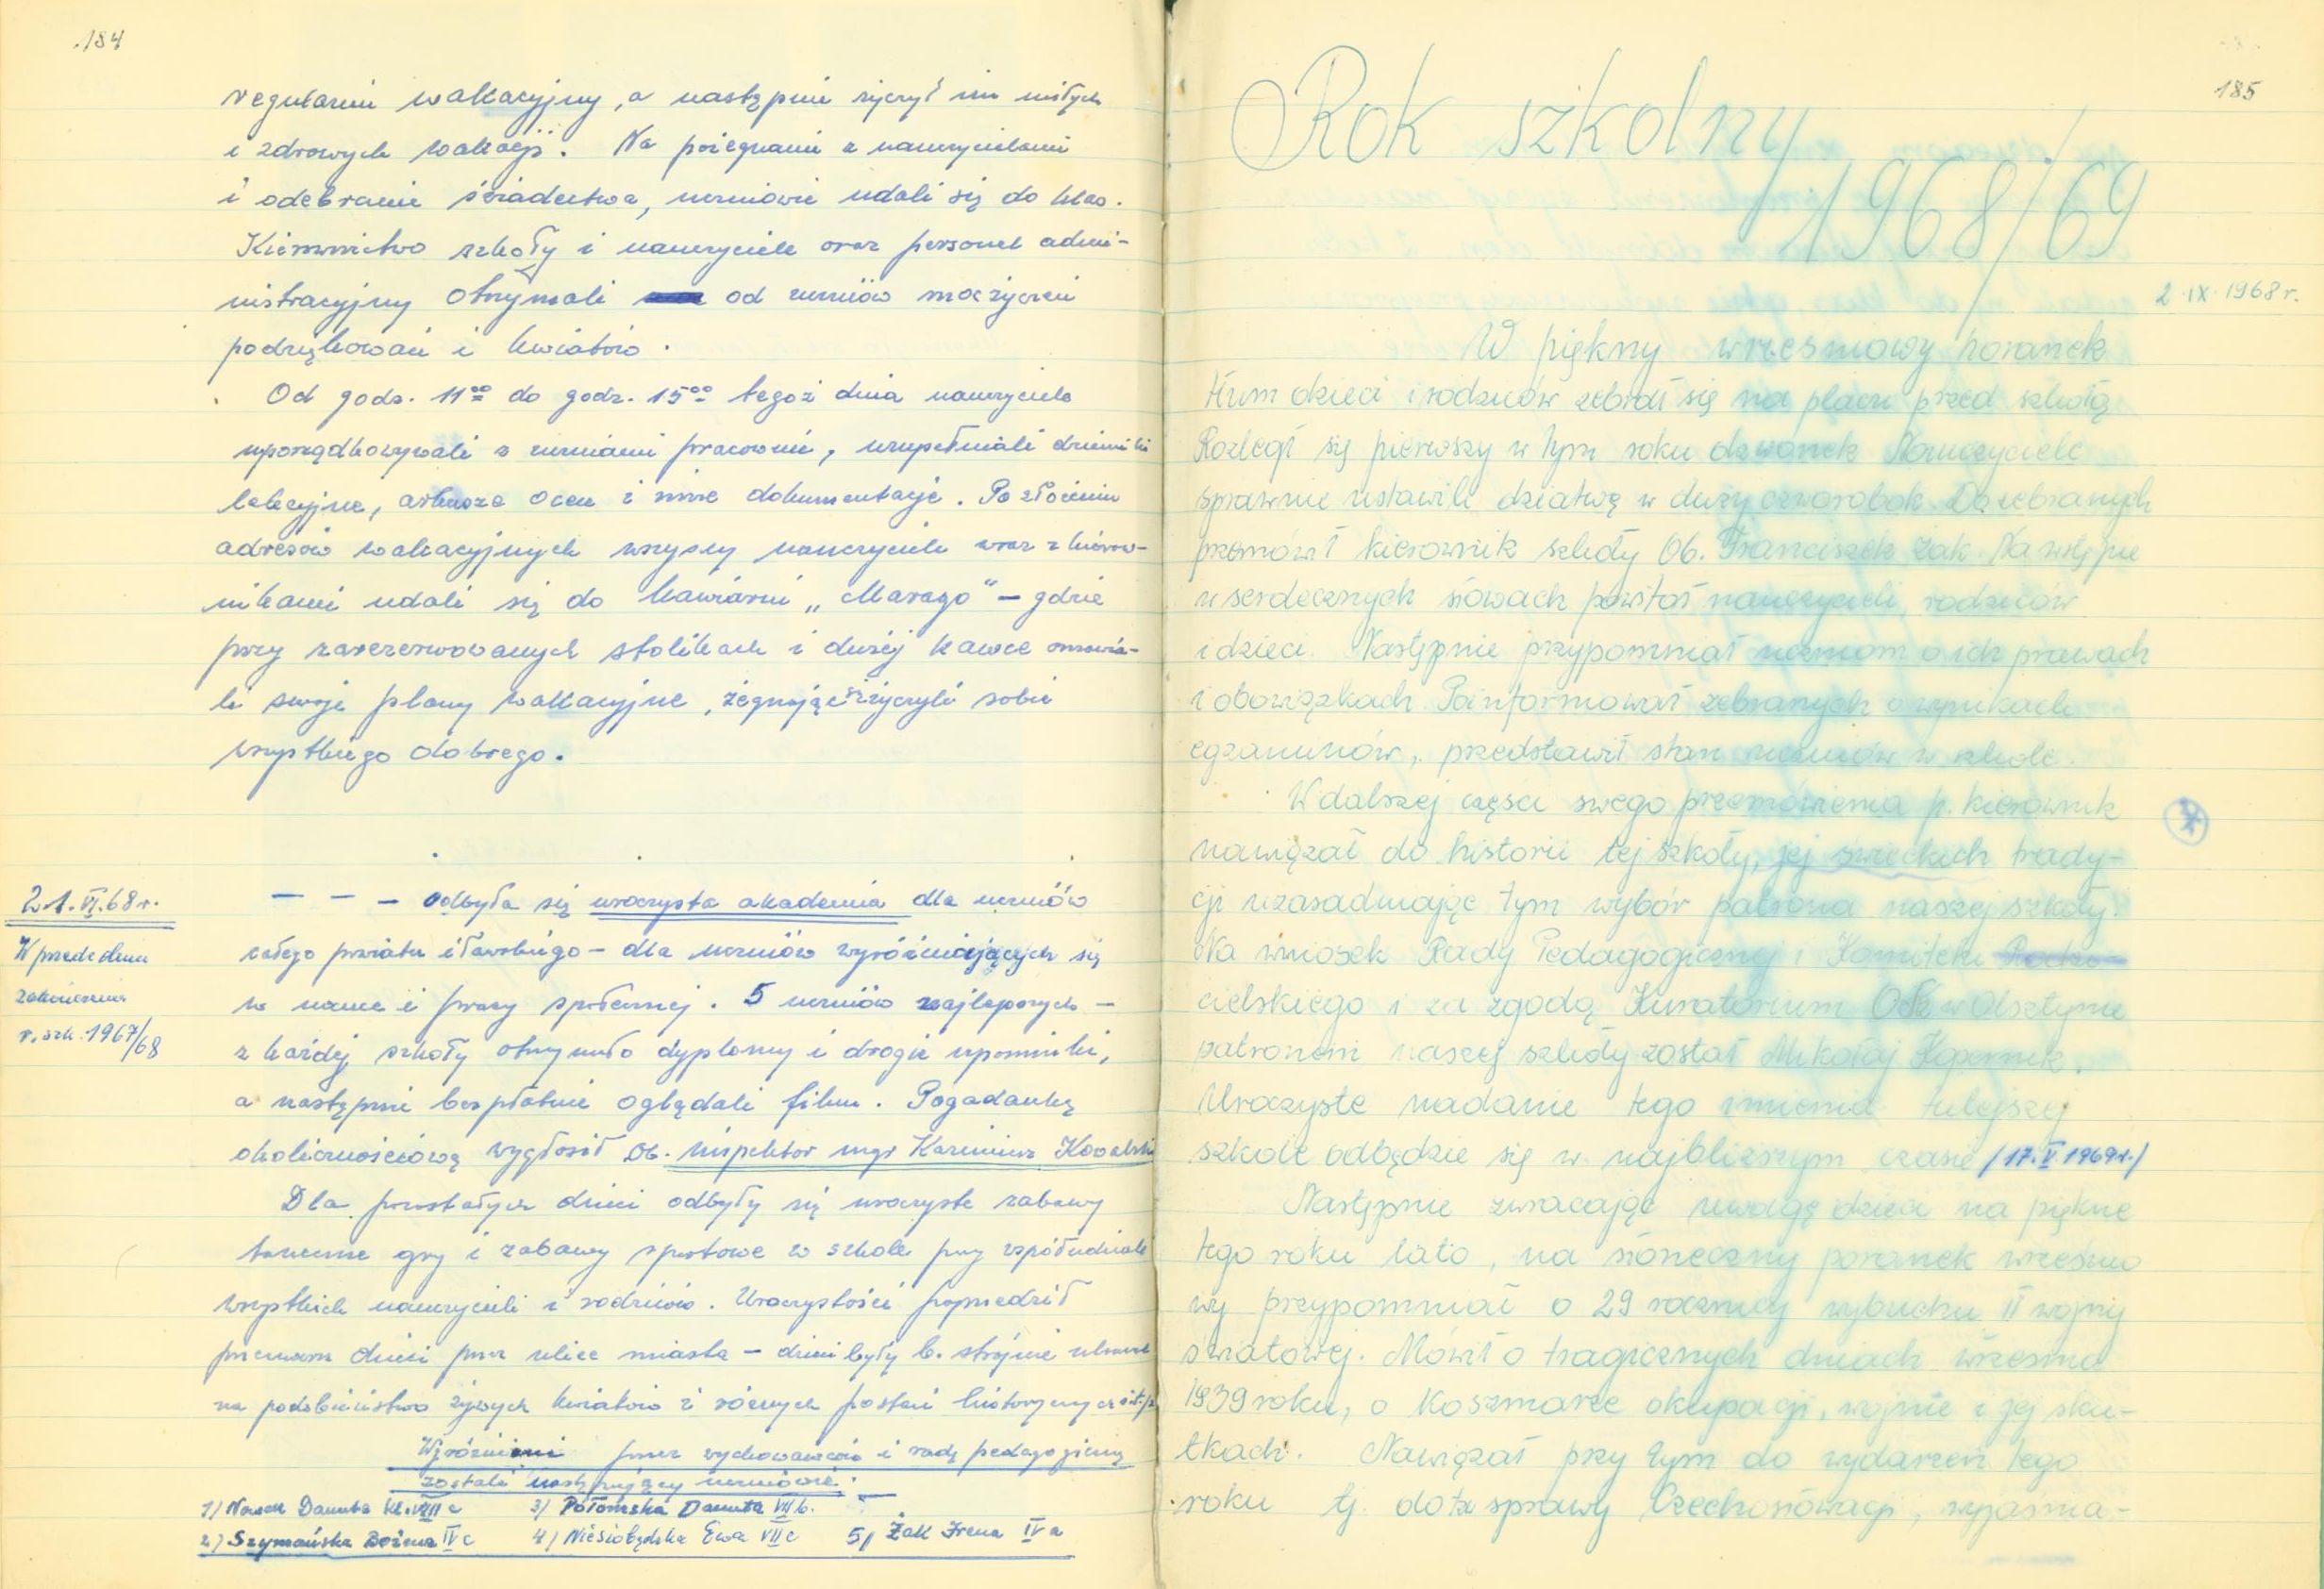 184
regulamin wakacyjny, a następnie życzył im miłych
i zdrowych wakacji. Na pożegnanie z nauczycielami
i odebranie świadectwa, uczniowie udali się do klas.
Kierownictwo szkoły i nauczyciele oraz personel admi-
nistracyjny otrzymali od uczniów moc życzeń
podziękowań i kwiatów.
Od godz. 11°° do godz. 15°° tegoż dnia nauczyciele
uporządkowywali z uczniami pracownie, uzupełniali dzienniki
lekcyjne, arkusze ocen i inne dokumentacje. Po złożeniu
adresów wakacyjnych wszyscy nauczyciele wraz z kierow-
nikami udali się do kawiarni „Marago" – gdzie
przy zarezerwowanych stolikach i dużej kawce omawia-
li swoje plany wakacyjne, żegnając się życzyli sobie
wszystkiego dobrego.
21.VI.68r.
W przededniu
zakończenia
r. szk. 1967/68
– – – odbyła się uroczysta akademia dla uczniów
całego powiatu iławskiego – dla uczniów wyróżniających się
w nauce i pracy społecznej. 5 uczniów najlepszych –
z każdej szkoły otrzymało dyplomy i drogie upominki,
a następnie bezpłatnie oglądali film. Pogadankę
okolicznościową wygłosił Ob. inspektor mgr Kazimierz Kowalski
Dla pozostałych dzieci odbyły się uroczyste zabawy
taneczne gry i zabawy sportowe w szkole przy współudziale
wszystkich nauczycieli i rodziców. Uroczystości poprzedził
przemarsz dzieci przez ulice miasta – dzieci były b. strojnie ubrane
na podobieństwo żywych kwiatów i różnych postaci historycznych it.p.
Wyróżnieni przez wychowawców i radę pedagogiczną
zostali następujący uczniowie:
1) Nowak Danuta kl. VIII c 3) Połomska Danuta VII b.
2) Szymańska Bożena IV c 4) Niesiobędzka Ewa VII c 5) Żak Irena IV a
185
Rok szkolny
1968/69
2.IX.1968r.
W piękny wrześniowy poranek
tłum dzieci i rodziców zebrał się na placu przed szkołą
Rozległ się pierwszy w tym roku dzwonek Nauczyciele
sprawnie ustawili dziatwę w duży czworobok. Do zebranych
przemówił kierownik szkoły Ob. Franciszek Żak. Na wstępie
w serdecznych słowach powitał nauczycieli, rodziców
i dzieci. Następnie przypomniał uczniom o ich prawach
i obowiązkach. Poinformował zebranych o wynikach
egzaminów, przedstawił stan uczniów w szkole.
W dalszej części swego przemówienia p. kierownik
nawiązał do historii tej szkoły, jej świeckich trady-
cji uzasadniając tym wybór patrona naszej szkoły.
Na wniosek Rady Pedagogicznej i Komitetu Rodzi-
cielskiego i za zgodą Kuratorium OSz w Olsztynie
patronem naszej szkoły został Mikołaj Kopernik.
Uroczyste nadanie tego imienia tutejszej
szkole odbędzie się w najbliższym czasie /17.V.1969r./
Następnie zwracając uwagę dzieci na piękne
tego roku lato, na słoneczny poranek wrześnio
wy przypomniał o 29 rocznicy wybuchu II wojny
światowej. Mówił o tragicznych dniach września
1939 roku, o koszmarze okupacji, wojnie i jej sku-
tkach. Nawiązał przy tym do wydarzeń tego
roku tj. do tzw sprawy Czechosłowacji, wyjaśnia-